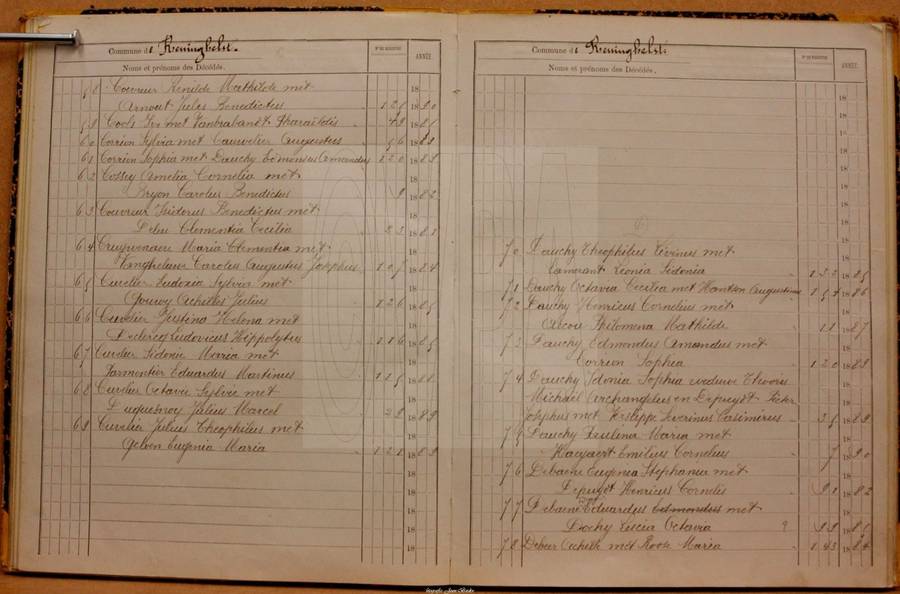 Commune de Reninghelst.
Noms et prénoms des Décédés.
ANNÉE
58 Couvreur Renilde Mathilde met
Arnout Jules Benedictus 1890
59 Cools Ivo met Vanbrabandt
60 Correion Sylvia met Cauwelier Augustus 56
61 Correion Sophia met Dauchy Edmondus Amandus 120 1883
62 Cossey Amelia Cornelia met
Bryon Carolus Benedictus 9 1882
63 Couvreur Isidorus Benedictus met
Leleu Clementia Cecilia 23
64 Cruywenaere Maria Clementia met
Vangheluw Carolus Augustus Josephus 107 1884
65 Cuvelier Eudoxia Sylvia met
Achilles Julius 126
66 Cuvelier Justina Helena met
Declercq Ludovicus Hippolytus 116 1885
67 Cuvelier Sidonie Maria met
Parmentier Eduardus Martinus 1888
68 Cuvelier Octavie Sylvie met
Duquesnoy Julius Marcel 28 1889
69 Cuvelier Julius Theophilus met
Eugenia Maria 121 1889
Commune de Reninghelst
Noms et prénoms des Décédés.
ANNÉE
70 Dauchy Theophilus Livinus met
Camerant Leonia Sidonia 132 1885
71 Dauchy Octavia Cecilia met Hantson Augustinus 154 1886
72 Dauchy Henricus Cornelius met
Philomena Mathilde 11 1887
73 Dauchy Edmondus Amandus met
Correion Sophia 120 1883
74 Dauchy Idonia Sophia weduwe
Michaël Archangelus en Depuydt Pieter
Josephus met Severinus Casimirus 35 1889
75 Dauchy Paulina Maria met
Haezaert Emilius Cornelius 7 1890
76 Debaene Eugenia Stephania met
Depuydt Henricus Cornelis 1882
77 Debaene Eduardus Edmondus met
Dochy Lucia Octavia
78 Debeer Achiel met Roose Maria 143 1884